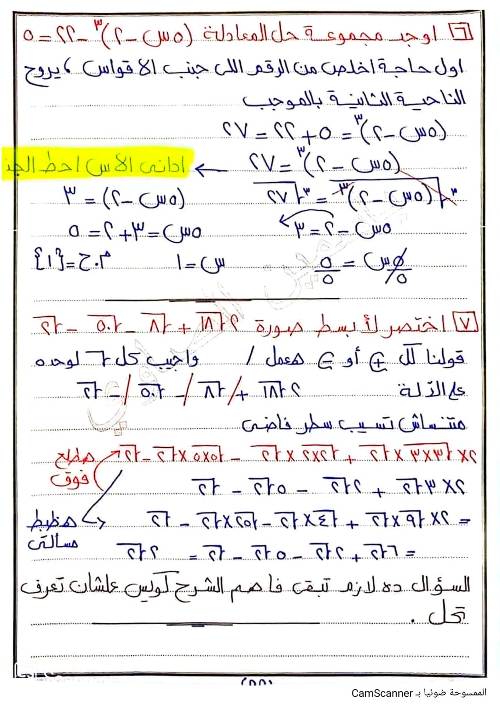 ٦ اوجد مجموعة حل المعادلة (٥س-٢)^٣ - ٢٢ = ٥
اول حاجة اخلص من الرقم اللى جنب الاقواس ، يروح
الناحية الثانية بالموجب
(٥س-٢)^٣ = ٥ + ٢٢ = ٢٧
(٥س-٢)^٣ = ٢٧ ← ادانى الاس احط الجذ
∛(٥س-٢)^٣ = ∛٢٧ (٥س-٢) = ٣
٥س-٢ = ٣ ٥س = ٣ + ٢ = ٥
٥س/٥ = ٥/٥ س = ١ م.ح = {١}
٧ اختصر لأبسط صورة ٢√١٨ + √٨ - √٥٠ - √٢
قولنا لك + أو - هعمل / واجيب كل √ لوحده
على الآلة
٢√١٨ + / √٨ - / √٥٠ / - √٢
متنساش تسيب سطر فاضى
٢×√٣×٣×٢ + √٢×٢×٢ - √٥×٥×٢ - √٢ هطلع
فوق
٢×٣√٢ + ٢√٢ - ٥√٢ - √٢
= ٢×√٩×√٢ + √٤×√٢ - √٢٥×√٢ - √٢ هظبط
مسألتى
= ٦√٢ + ٢√٢ - ٥√٢ - √٢ = ٢√٢
السؤال ده لازم تبقى فاهم الشرح كويس علشان تعرف
تحل .
الممسوحة ضوئيا بـ CamScanner